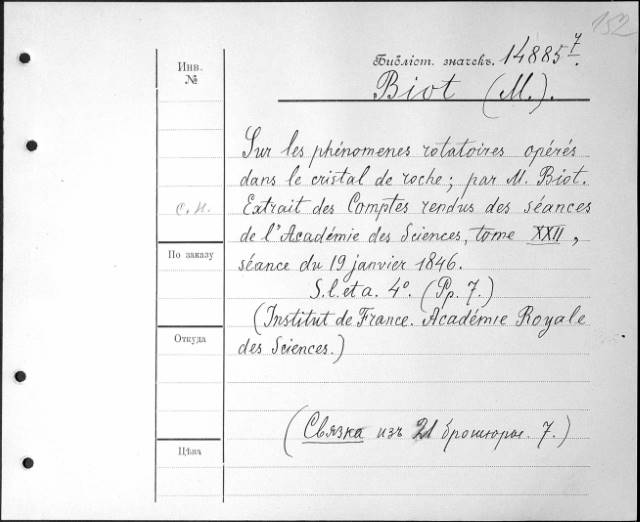 152
Инв.
№
Бібліот. значекъ. 14885 7.
Biot (M.).
Sur les phénomenes rotatoires opérés
dans le cristal de roche; par M. Biot.
С. Н.
Extrait des Comptes rendus des séances
de l'Académie des Sciences, tome XXII,
По заказу
séance du 19 janvier 1846.
S. l. et a. 4°. (Pp. 7.)
(Institut de France. Académie Royale
Откуда
des Sciences.)
(Связка изъ 21 брошюры. 7.)
Цѣна